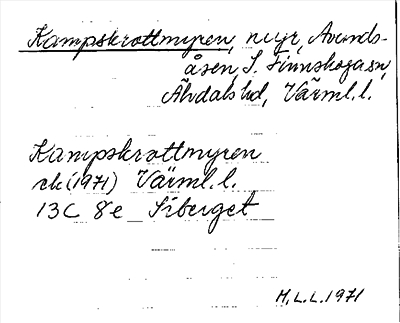 Kampskrattmyren, myr, Avunds-
åsen, S. Finnskoga sn,
Älvdals hd, Värml. l.
Kampskrattmyren
ek (1971) Värml. l.
13C 8e Siberget
H.L.L. 1971